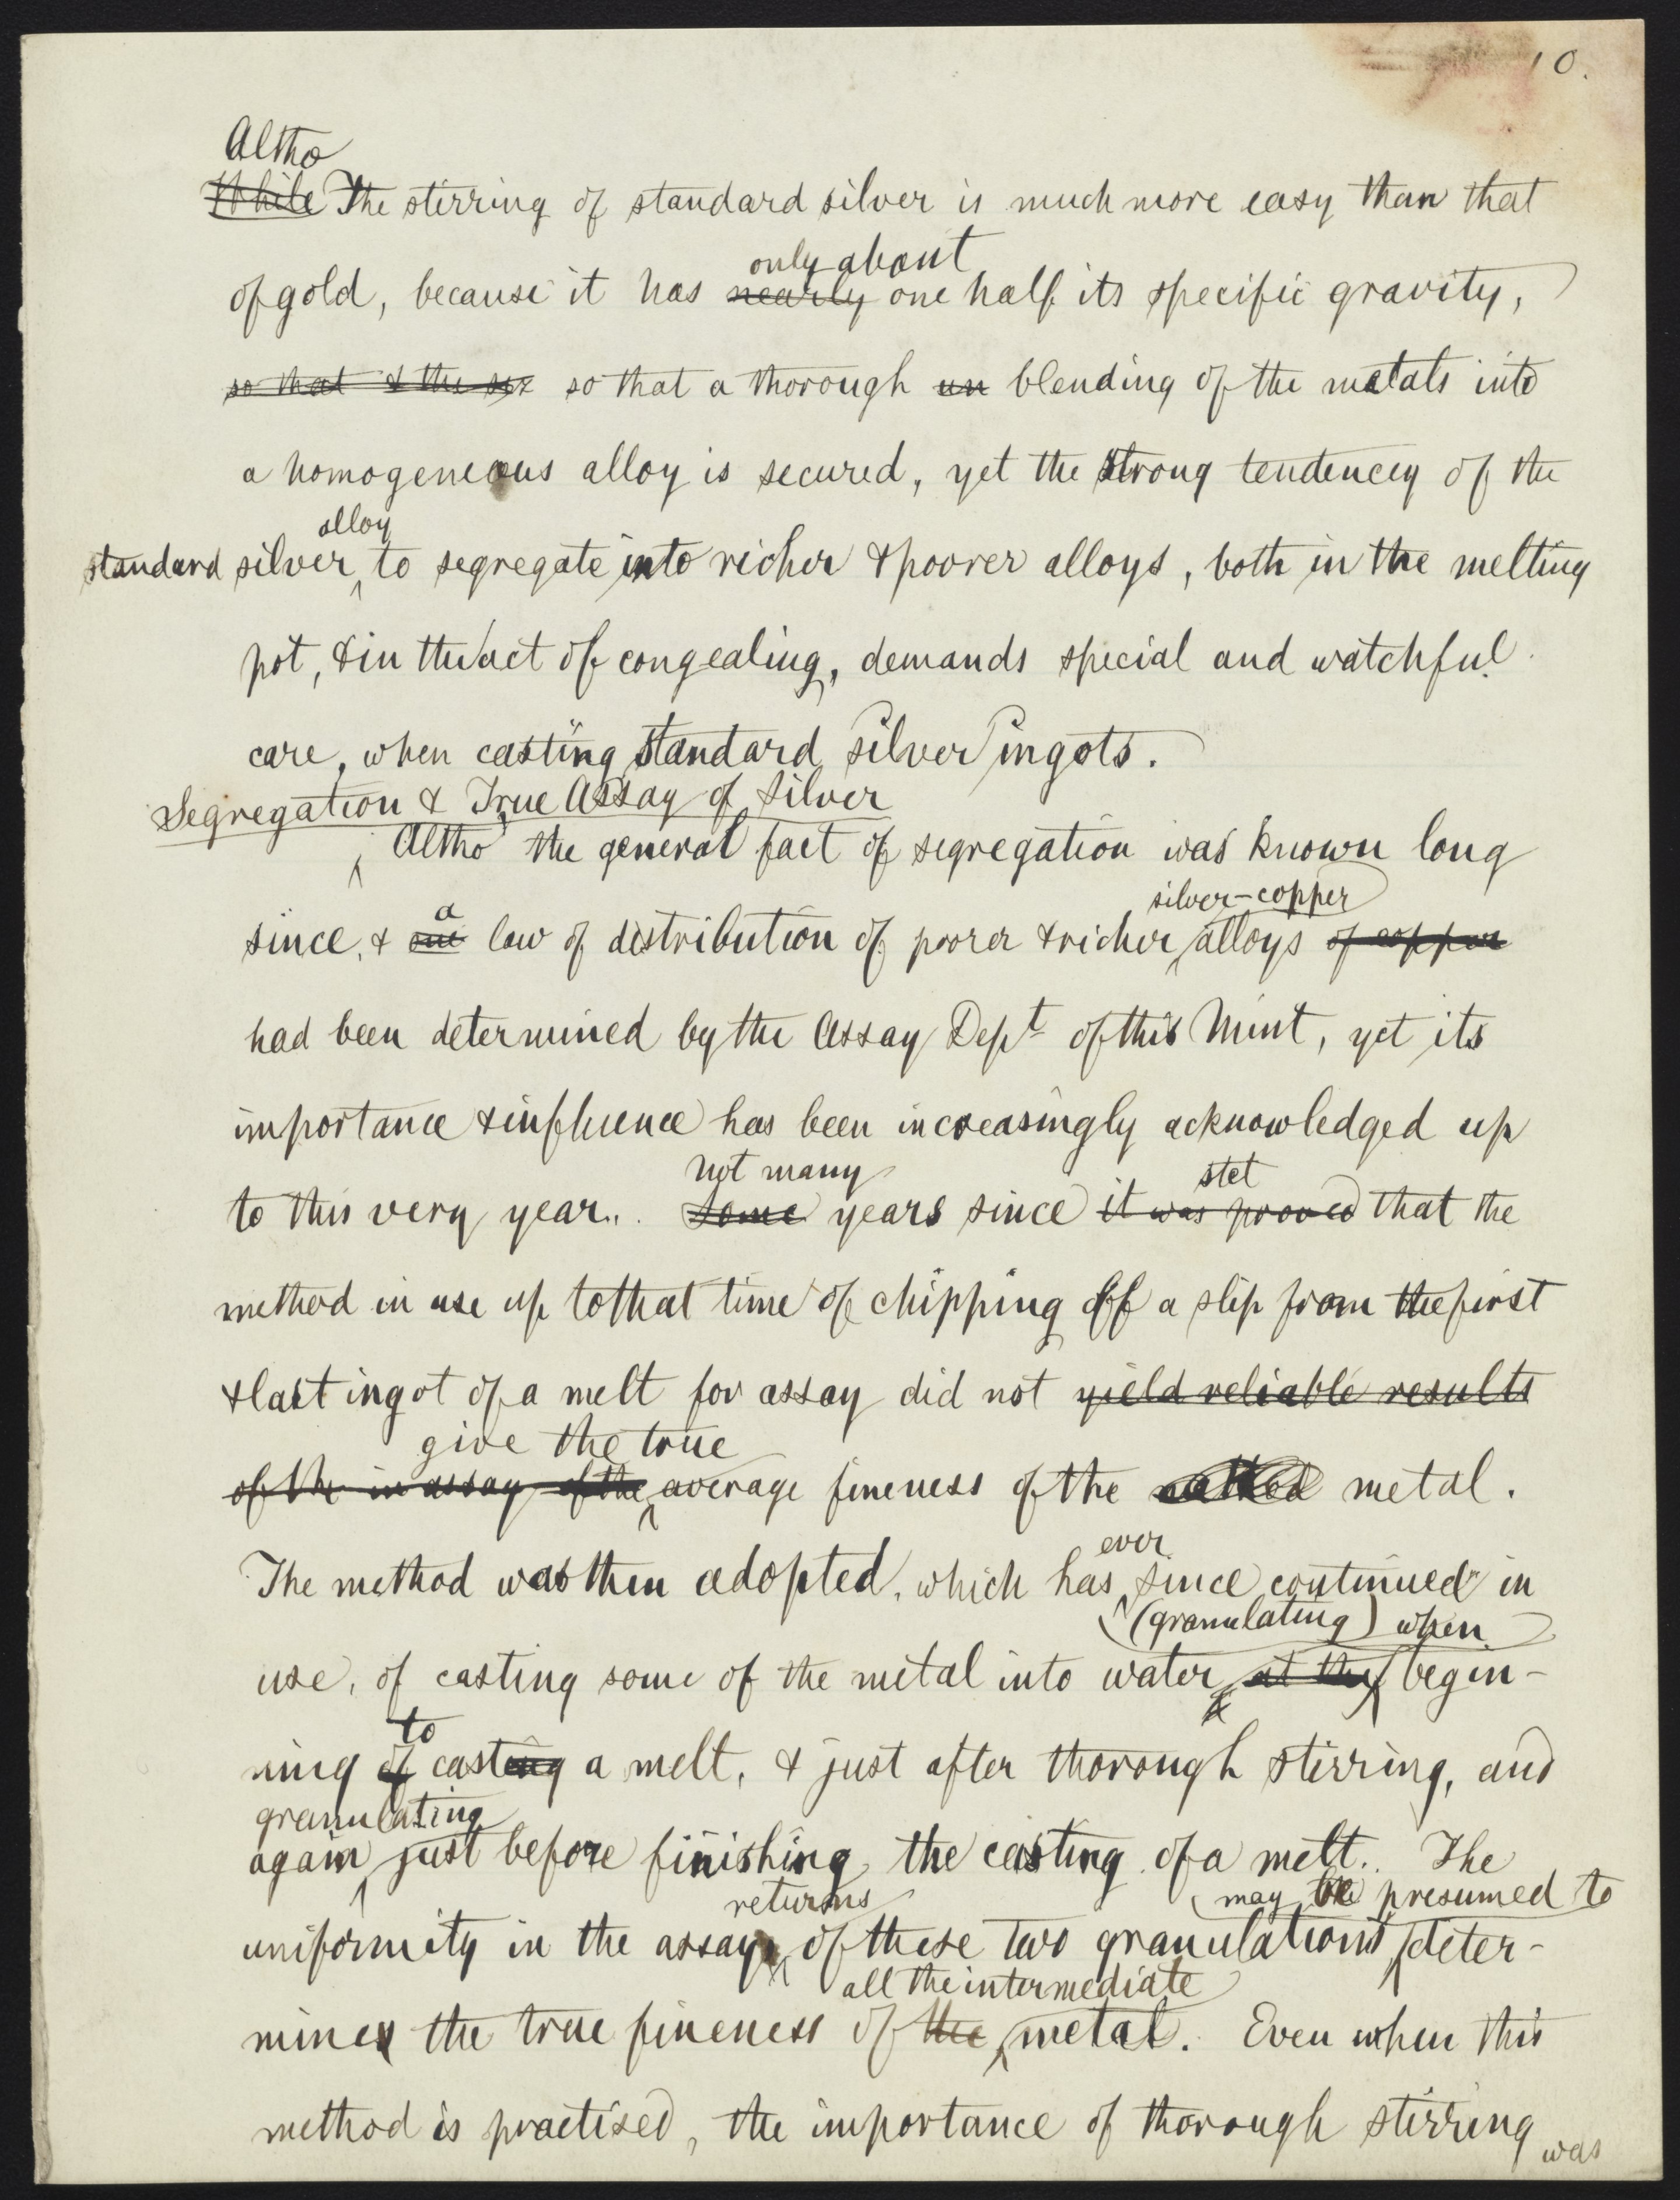 10.
Altho
While The stirring of standard silver is much more easy than that
only about
of gold, because it has nearly one half its specific gravity,
so that & the so that a thorough un blending of the metals into
a homogeneous alloy is secured, yet the strong tendency of the
alloy
standard silver to segregate into richer & poorer alloys, both in the melting
pot, & in the act of congealing, demands special and watchful
care, when casting standard silver ingots.
Segregation & True Assay of Silver
Altho' the general fact of segregation was known long
silver-copper
a
since, & one law of distribution of poorer & richer alloys of copper
had been determined by the Assay Dept of this Mint, yet its
importance & influence has been increasingly acknowledged up
not many stet
to this very year. Some years since it was proved that the
method in use up to that time of chipping off a slip from the first
& last ingot of a melt for assay did not yield reliable results
give the true
of the in assay of the average fineness of the melted metal.
ever
The method was then adopted, which has since continued in
(granulating) when
use, of casting some of the metal into water at the begin-
to
ning of casting a melt, & just after thorough stirring, and
granulating
again just before finishing the casting of a melt. The
returns may be presumed to
uniformity in the assays of these two granulations deter-
all the intermediate
mines the true fineness of the metal. Even when this
method is practised, the importance of thorough stirring
was